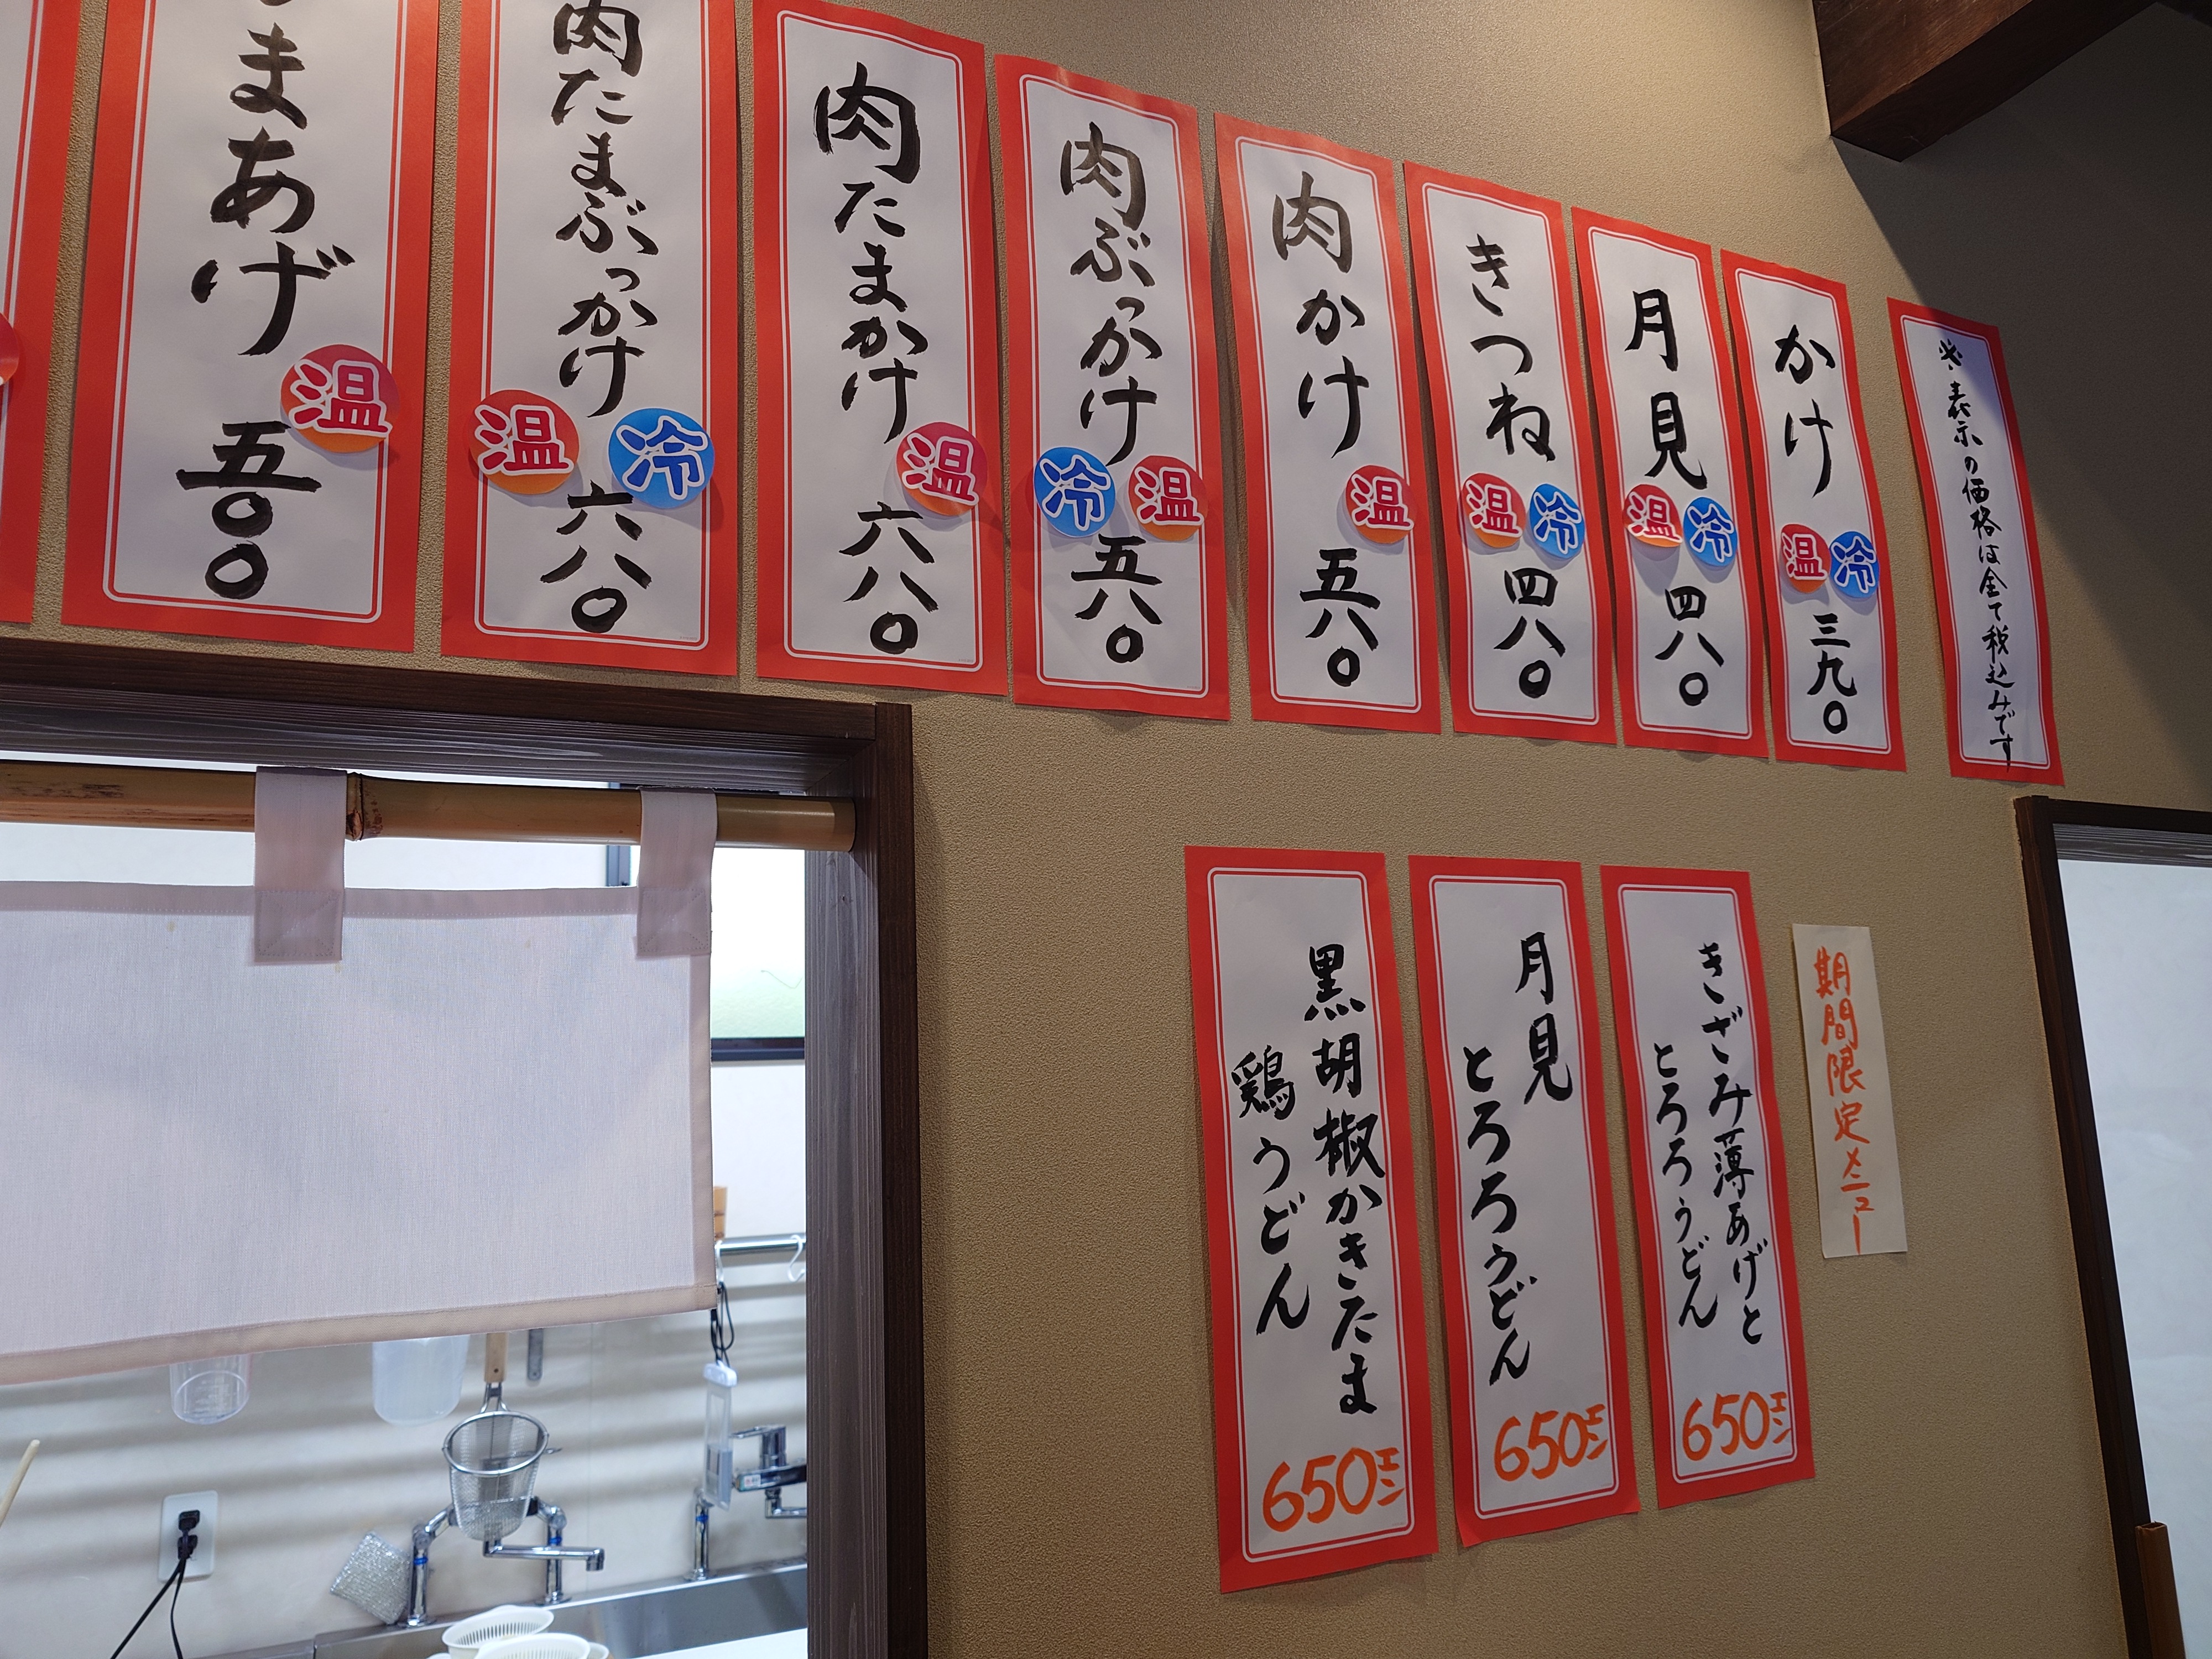 ※表示の価格は全て税込みです
かけ
温 冷
三九〇
月見
温 冷
四八〇
きつね
温 冷
四八〇
肉かけ
温
五八〇
肉ぶっかけ
冷 温
五八〇
肉たまかけ
温
六八〇
肉たまぶっかけ
温 冷
六八〇
まあげ
温
五〇〇
期間限定メニュー
きざみ薄あげと
とろろうどん
650エン
月見
とろろうどん
650エン
黒胡椒かきたま
鶏うどん
650エン